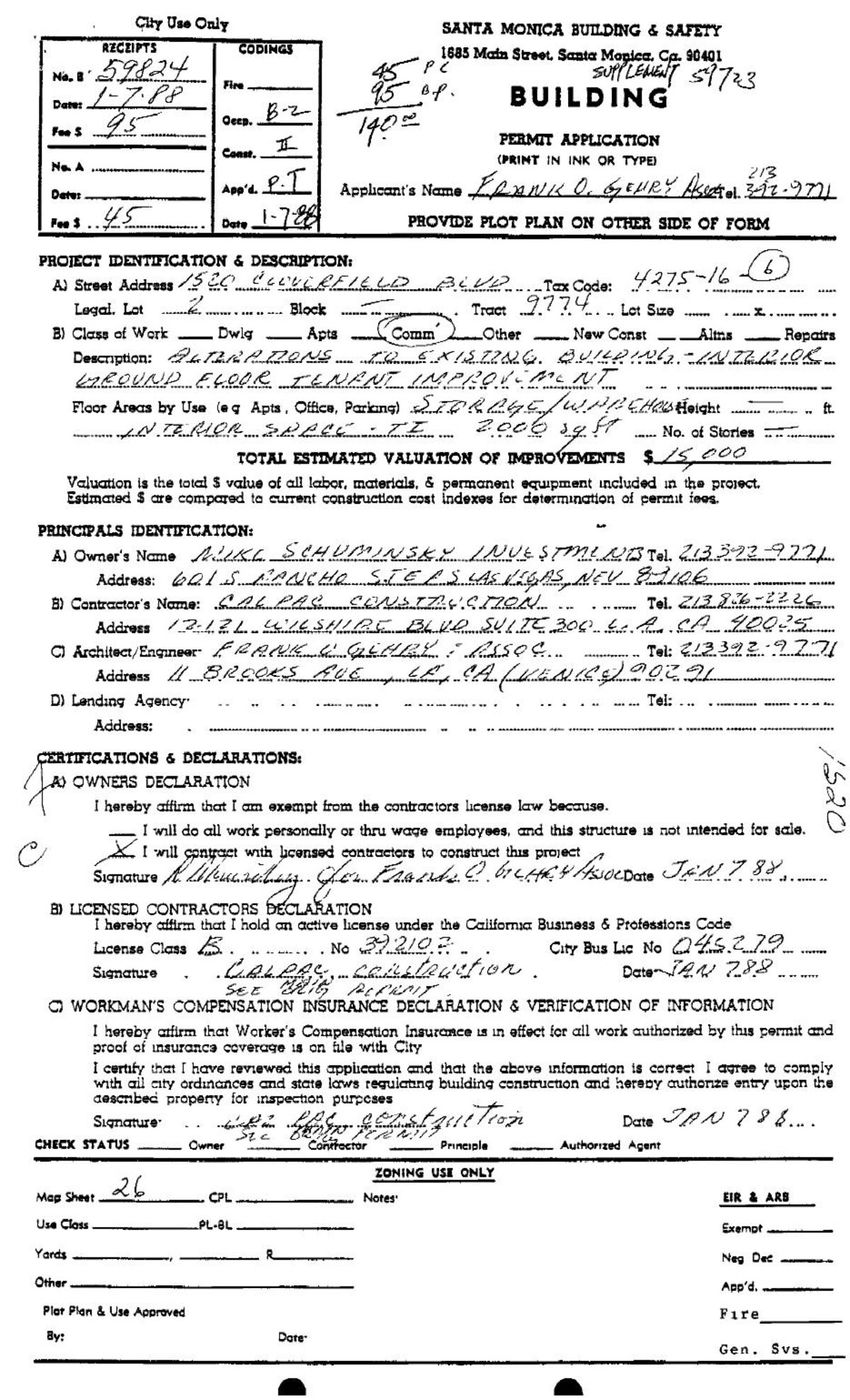 City Use Only
RECEIPTS
No. B 59824
Date: 1-7-88
Fee $ 95
No. A
Date:
Fee $ 45
CODINGS
Fire
Occp. B-2
Const. II
App'd. P.T
Date 1-7-88
45 PC
95 B.P.
140.00
SANTA MONICA BUILDING & SAFETY
1685 Main Street, Santa Monica, Ca. 90401
SUPPLEMENT 59723
BUILDING
PERMIT APPLICATION
(PRINT IN INK OR TYPE)
Applicant's Name FRANK O. GEHRY Assoc Tel. 213 392-9771
PROVIDE PLOT PLAN ON OTHER SIDE OF FORM
PROJECT IDENTIFICATION & DESCRIPTION:
A) Street Address 1520 CLOVERFIELD BLVD Tax Code: 4275-16-6
Legal. Lot 2 Block — Tract 9774 Lot Size x
B) Class of Work Dwlg Apts Comm' Other New Const Altns Repairs
Description: ALTERATIONS TO EXISTING BUILDING - INTERIOR
GROUND FLOOR TENANT IMPROVEMENT
Floor Areas by Use (eg Apts, Office, Parking) STORAGE/WAREHOUSE Height — ft.
INTERIOR SPACE - TI 2000 sq ft No. of Stories —
TOTAL ESTIMATED VALUATION OF IMPROVEMENTS $ 15,000
Valuation is the total $ value of all labor, materials, & permanent equipment included in the project.
Estimated $ are compared to current construction cost indexes for determination of permit fees.
PRINCIPALS IDENTIFICATION:
A) Owner's Name MIKE SCHUMINSKY INVESTMENTS Tel. 213 392-9771
Address: 601 S. RANCHO STE A S LAS VEGAS, NEV 89106
B) Contractor's Name: CALPAC CONSTRUCTION Tel. 213 826-2226
Address 12121 WILSHIRE BLVD SUITE 300 L.A. CA 90025
C) Architect/Engineer FRANK O GEHRY & ASSOC Tel: 213 392-9771
Address 11 BROOKS AVE, LA, CA (VENICE) 90291
D) Lending Agency Tel:
Address:
CERTIFICATIONS & DECLARATIONS:
A) OWNERS DECLARATION
I hereby affirm that I am exempt from the contractors license law because.
I will do all work personally or thru wage employees, and this structure is not intended for sale.
X I will contract with licensed contractors to construct this project
C
1520
Signature for Frank O. GEHRY Assoc Date JAN 7 88
B) LICENSED CONTRACTORS DECLARATION
I hereby affirm that I hold an active license under the California Business & Professions Code
License Class B No 392102 City Bus Lic No 045279
Signature CALPAC CONSTRUCTION Date JAN 7 88
SEE ORIG PERMIT
C) WORKMAN'S COMPENSATION INSURANCE DECLARATION & VERIFICATION OF INFORMATION
I hereby affirm that Worker's Compensation Insurance is in effect for all work authorized by this permit and
proof of insurance coverage is on file with City
I certify that I have reviewed this application and that the above information is correct I agree to comply
with all city ordinances and state laws regulating building construction and hereby authorize entry upon the
described property for inspection purposes
Signature CAL PAC CONSTRUCTION Date JAN 7 88
SEE ORIG PERMIT
CHECK STATUS Owner Contractor Principle Authorized Agent
ZONING USE ONLY
Map Sheet 26 CPL Notes
Use Class PL-BL
Yards , R
Other
Plot Plan & Use Approved
By: Date
EIR & ARB
Exempt
Neg Dec
App'd.
Fire
Gen. Svs.